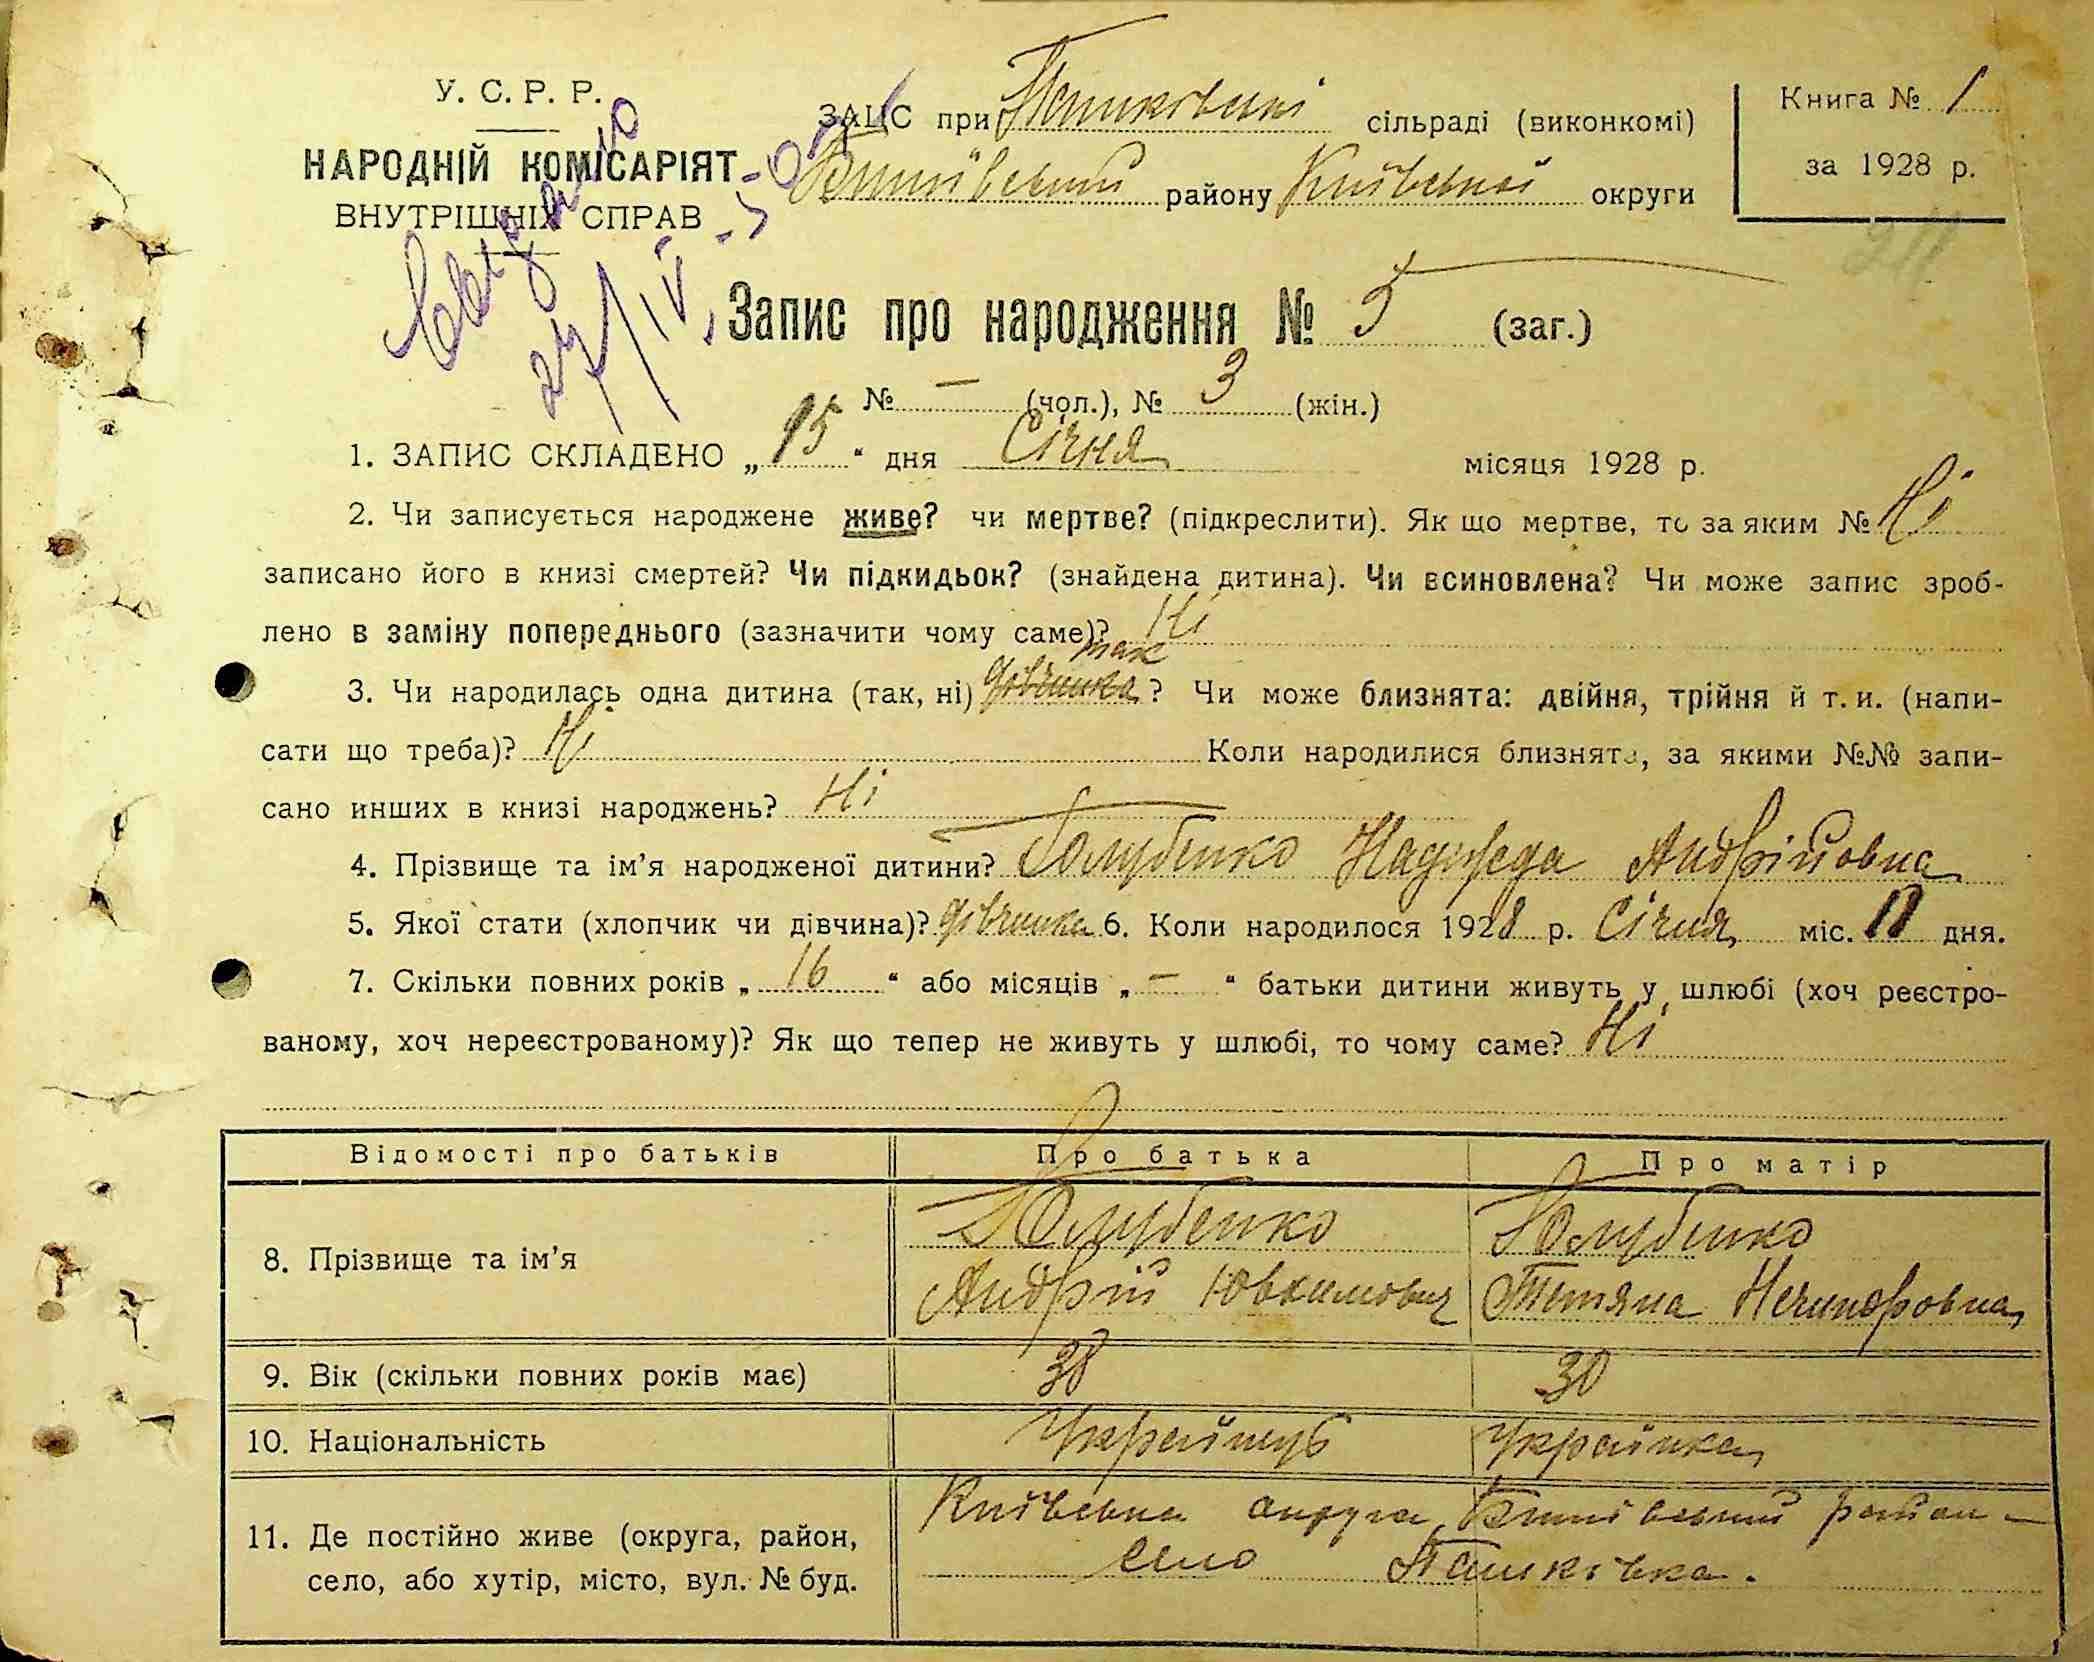 У. С. Р. Р.
НАРОДНІЙ КОМІСАРІЯТ
ВНУТРІШНІХ СПРАВ
ЗАЦС при Пашківській сільраді (виконкомі)
районy Київської округи
Книга № 1
за 1928 р.
27/IV
Запис про народження № 5 (заг.)
№ — (чол.), № 3 (жін.)
1. ЗАПИС СКЛАДЕНО „15“ дня Січня місяця 1928 р.
2. Чи записується народжене живе? чи мертве? (підкреслити). Як що мертве, то за яким № Ні
записано його в книзі смертей? Чи підкидьок? (знайдена дитина). Чи всиновлена? Чи може запис зроб-
лено в заміну попереднього (зазначити чому саме)? Ні
так
3. Чи народилась одна дитина (так, ні) дівчинка? Чи може близнята: двійня, трійня й т. и. (напи-
сати що треба)? Ні Коли народилися близнята, за якими №№ запи-
сано инших в книзі народжень? Ні
4. Прізвище та ім’я народженої дитини? Голубенко Надежда Андрійовна
5. Якої стати (хлопчик чи дівчина)? дівчинка 6. Коли народилося 1928 р. Січня міс. дня.
7. Скільки повних років „16“ або місяців „—“ батьки дитини живуть у шлюбі (хоч реєстро-
ваному, хоч нереєстрованому)? Як що тепер не живуть у шлюбі, то чому саме? Ні
Відомості про батьків Про батька Про матір
8. Прізвище та ім’я Голубенко Голубенко
Андрій Ювхимович Тетяна Нечипоровна
9. Вік (скільки повних років має) 38 30
10. Національність Украйнць Украйнка
11. Де постійно живе (округа, район,
село, або хутір, місто, вул. № буд.
Київська округа район
село Пашківка.